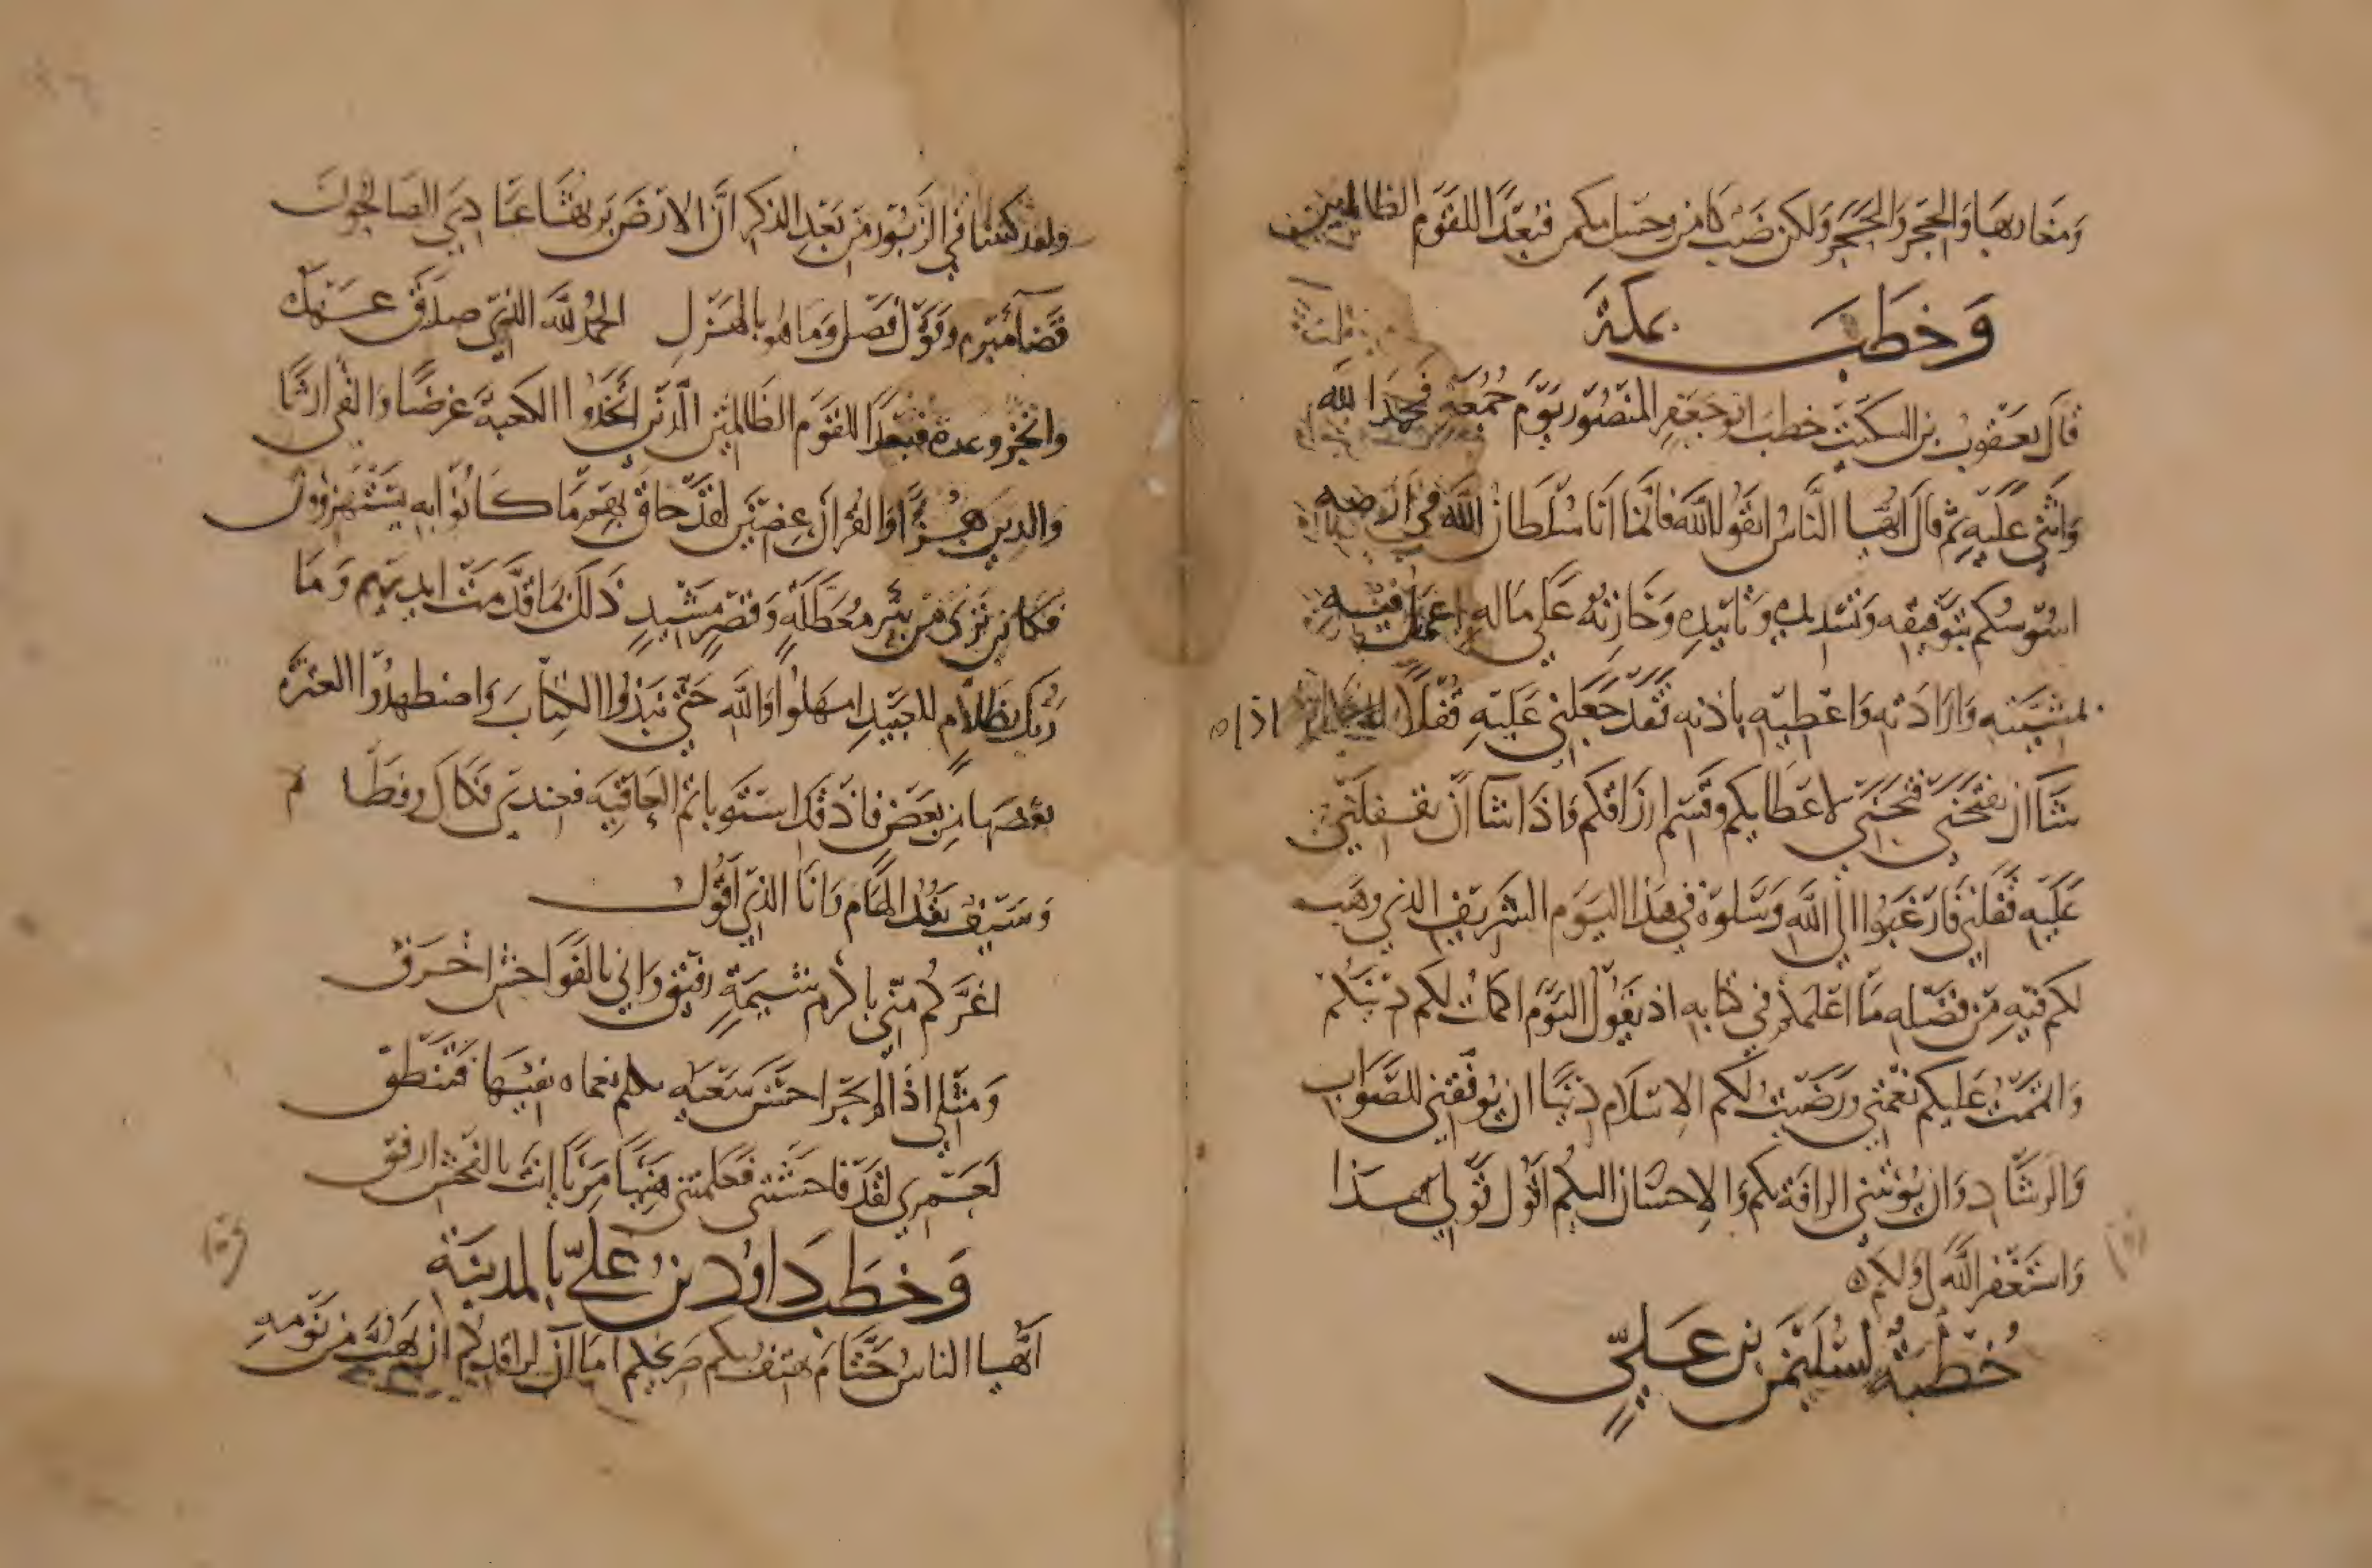 ومغاربها والحجر والحجر ولكن ضب كامن وحسل مكمن فبعدا للقوم الظالمين
وخطب بمكة
قال يعقوب بن السكيت خطب ابو جعفر المنصور يوم جمعة فحمد الله
واثنى عليه ثم قال ايها الناس اتقوا الله فانما انا سلطان الله في ارضه
اسوسكم بتوفيقه وتسديده وتاييده وخازنه على ماله اعمل فيه
بمشيئته وارادته واعطيه باذنه فقد جعلني عليه قفلا اذا
شاء ان يفتحني فتحني لاعطائكم وقسم ارزاقكم واذا شاء ان يقفلني
عليه قفلني فارغبوا الى الله وسلوه في هذا اليوم الشريف الذي وهب
لكم فيه من فضله ما اعلمكم في كتابه اذ يقول اليوم اكملت لكم دينكم
واتممت عليكم نعمتي ورضيت لكم الاسلام دينا ان يوفقني للصواب
والرشاد وان يلهمني الرافة بكم والاحسان اليكم اقول قولي هذا
واستغفر الله لي ولكم
خطبة لسليمن بن علي
ولقد كتبنا في الزبور من بعد الذكر ان الارض يرثها عبادي الصالحون
قضاء مبرم وقول فصل وما هو بالهزل الحمد لله الذي صدق عبده
وانجز وعده فبعدا للقوم الظالمين الذين اتخذوا الكعبة غرضا والفيء ارثا
والدين هزوا والقران عضين لقد حاق بهم ما كانوا به يستهزؤون
فكاين ترى من بئر معطلة وقصر مشيد ذلك بما قدمت ايديهم وما
ربك بظلام للعبيد امهلوا والله حتى نبذوا الكتاب واضطهدوا العترة
وسيف يقد الهام وانا الذي اقول
اغركم مني باكرم شيمة رفيق واني بالفواحش اخرق
ومثلي اذا لم يجز احسن سعيه تكلم نعماه بفيها فتنطق
لعمري لقد فاحشتني فغلبتني هنيئا مريئا انت بالفحش ارفق
وخطب داود بن علي بالمدينة
ايها الناس حتام يهتف بكم صريخكم اما ان لراقدكم ان يهب من نومه